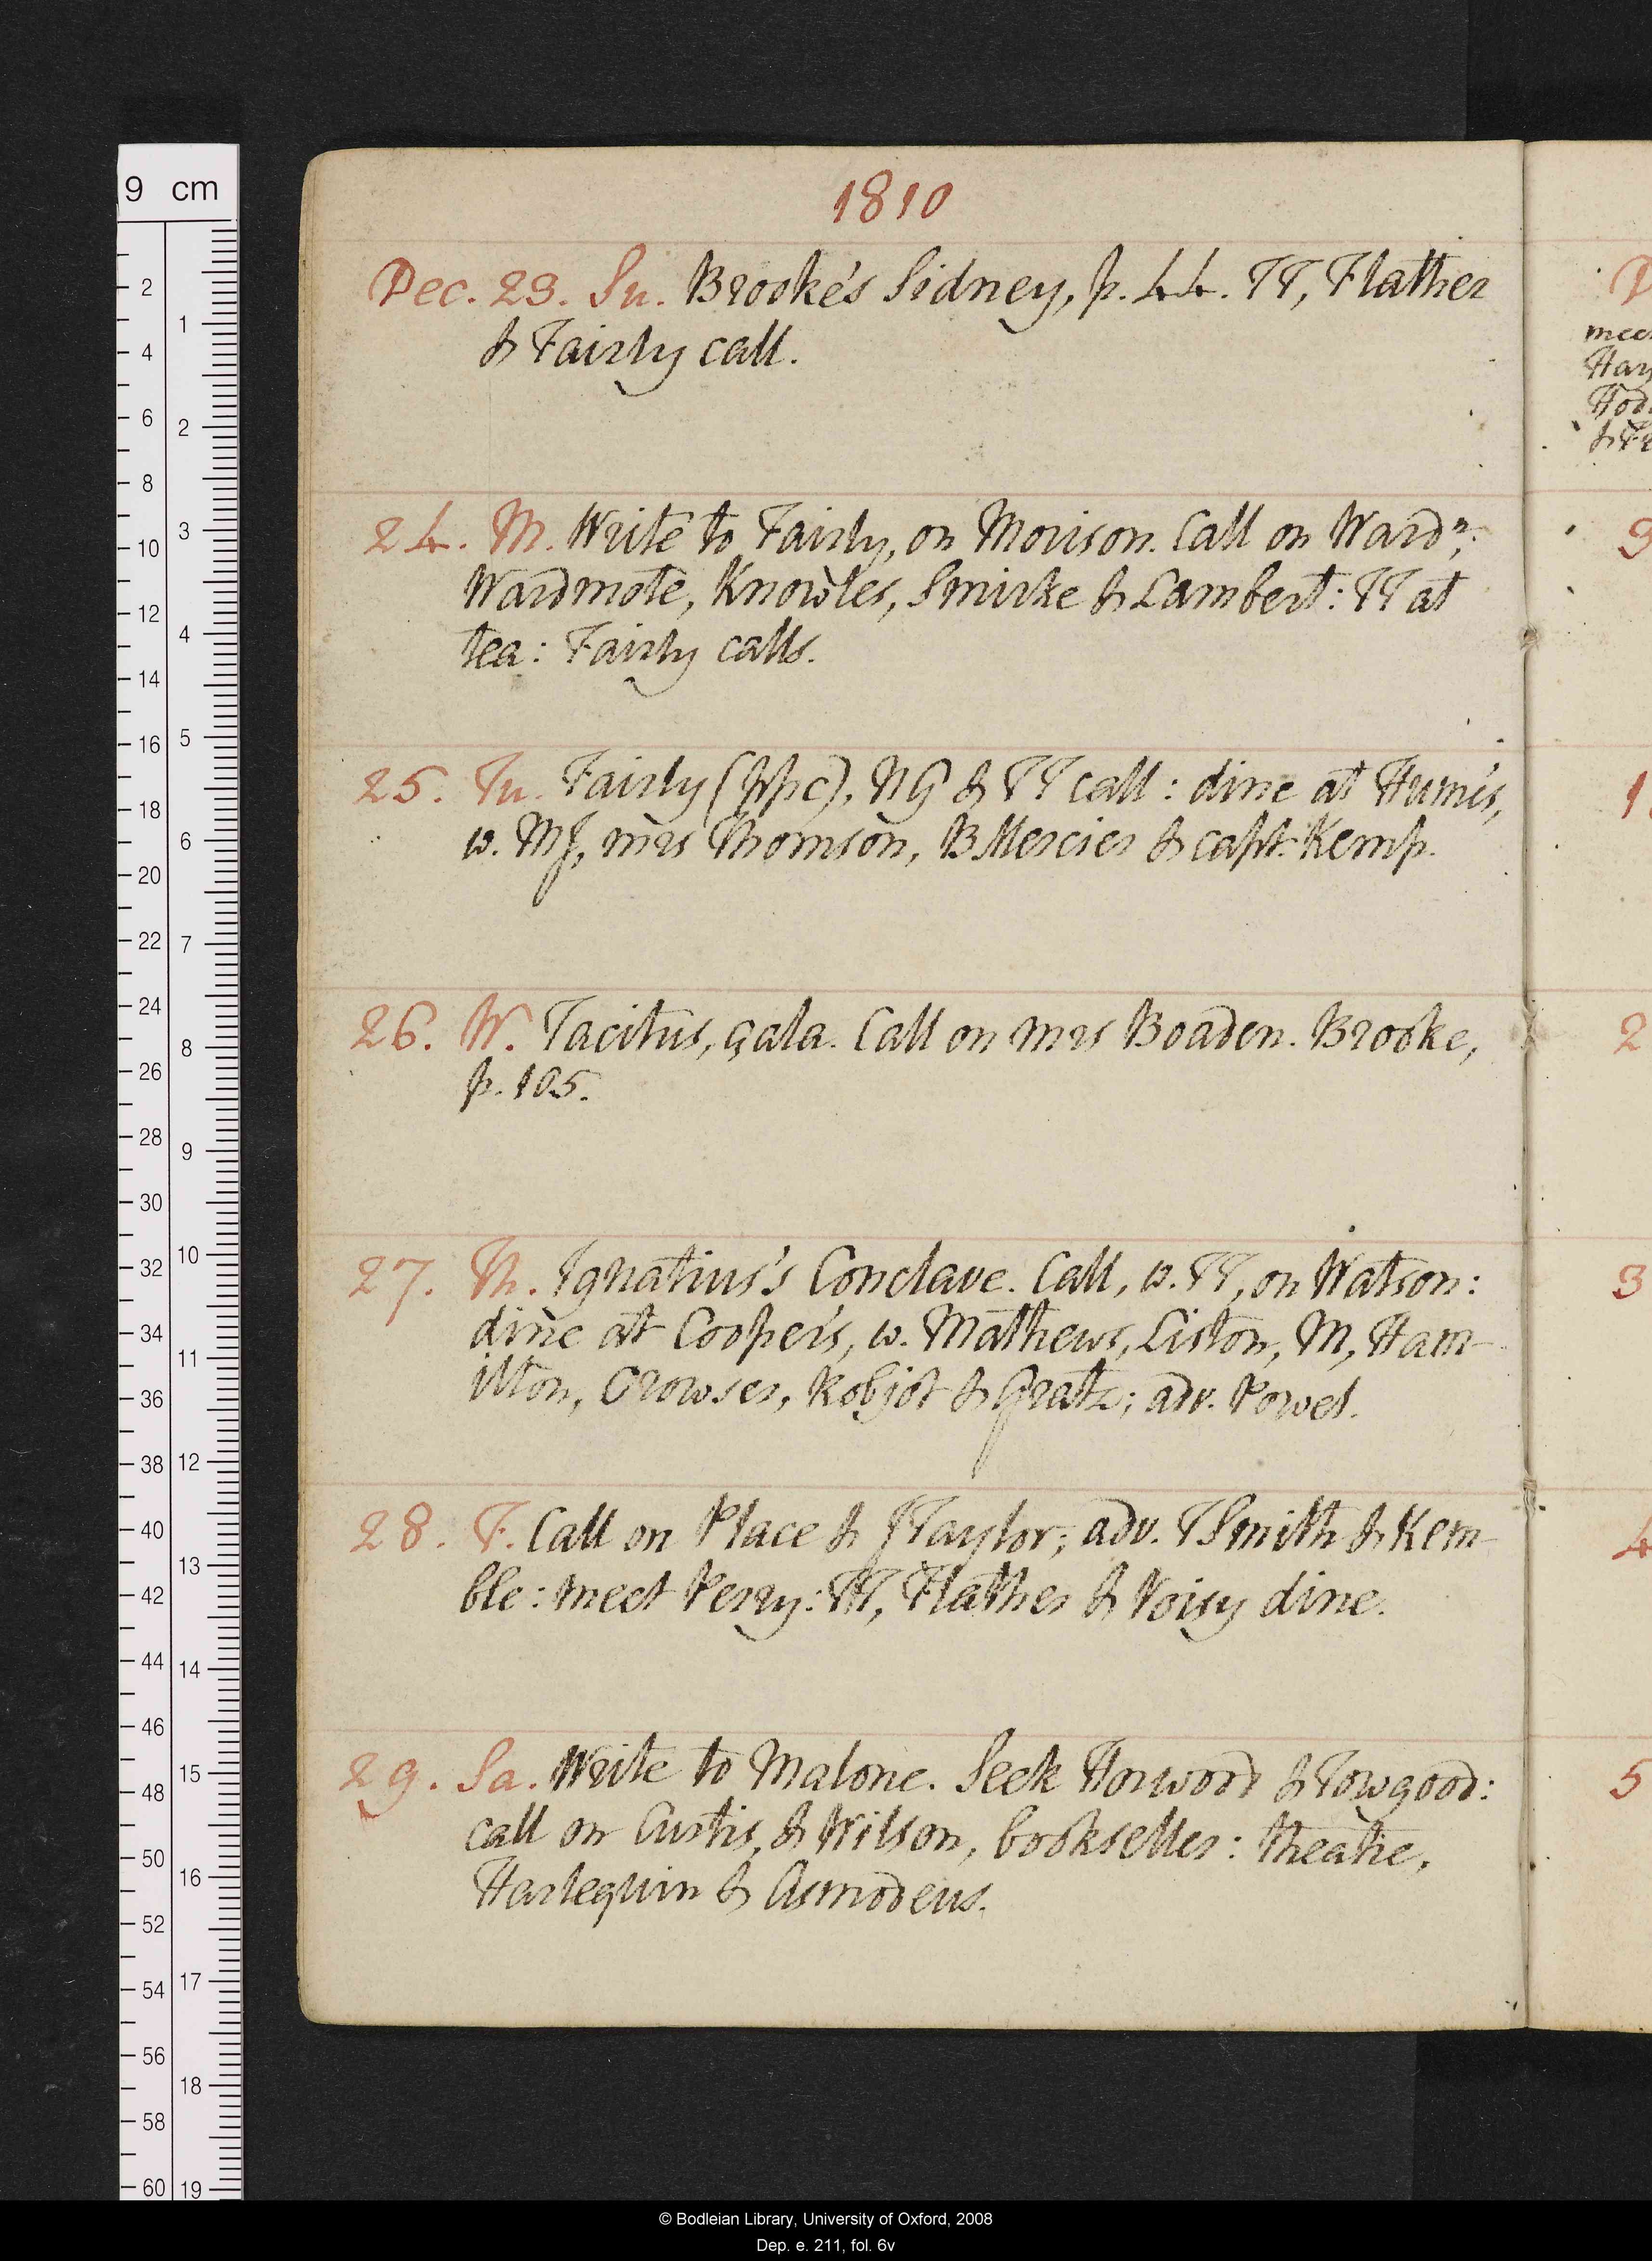 1810
Dec. 23. Su. Brooke's Sidney, p. 44. TT, Flather
& Fairly call.
24. M. Write to Fairly, on Morison. Call on Wardr.;
Wardmote, Knowles, Smirke & Lambert: TT at
tea: Fairly calls.
25. Tu. Fairly (ppc), NG & TT call: dine at Hume's,
w. MJ, mrs Thomson, B Mercier & capt. Kemp.
26. W. Tacitus, Gala. Call on mrs Boaden. Brooke,
p. 105.
27. Th. Ignatius's Conclave. Call, w. TT, on Watson:
dine at Cooper's, w. Mathews, Liston, M, Ham-
ilton, Crowser, Robjot & Gratz; adv. Powel.
28. F. Call on Place & J Taylor; adv. T Smith & Kem-
ble: meet Perry: TT, Flather & Voisy dine.
29. Sa. Write to Malone. Seek Horwood & Towgood:
call on Curtis, & Wilson, bookseller: theatre,
Harlequin & Asmodeus.
9 cm
© Bodleian Library, University of Oxford, 2008
Dep. e. 211, fol. 6v